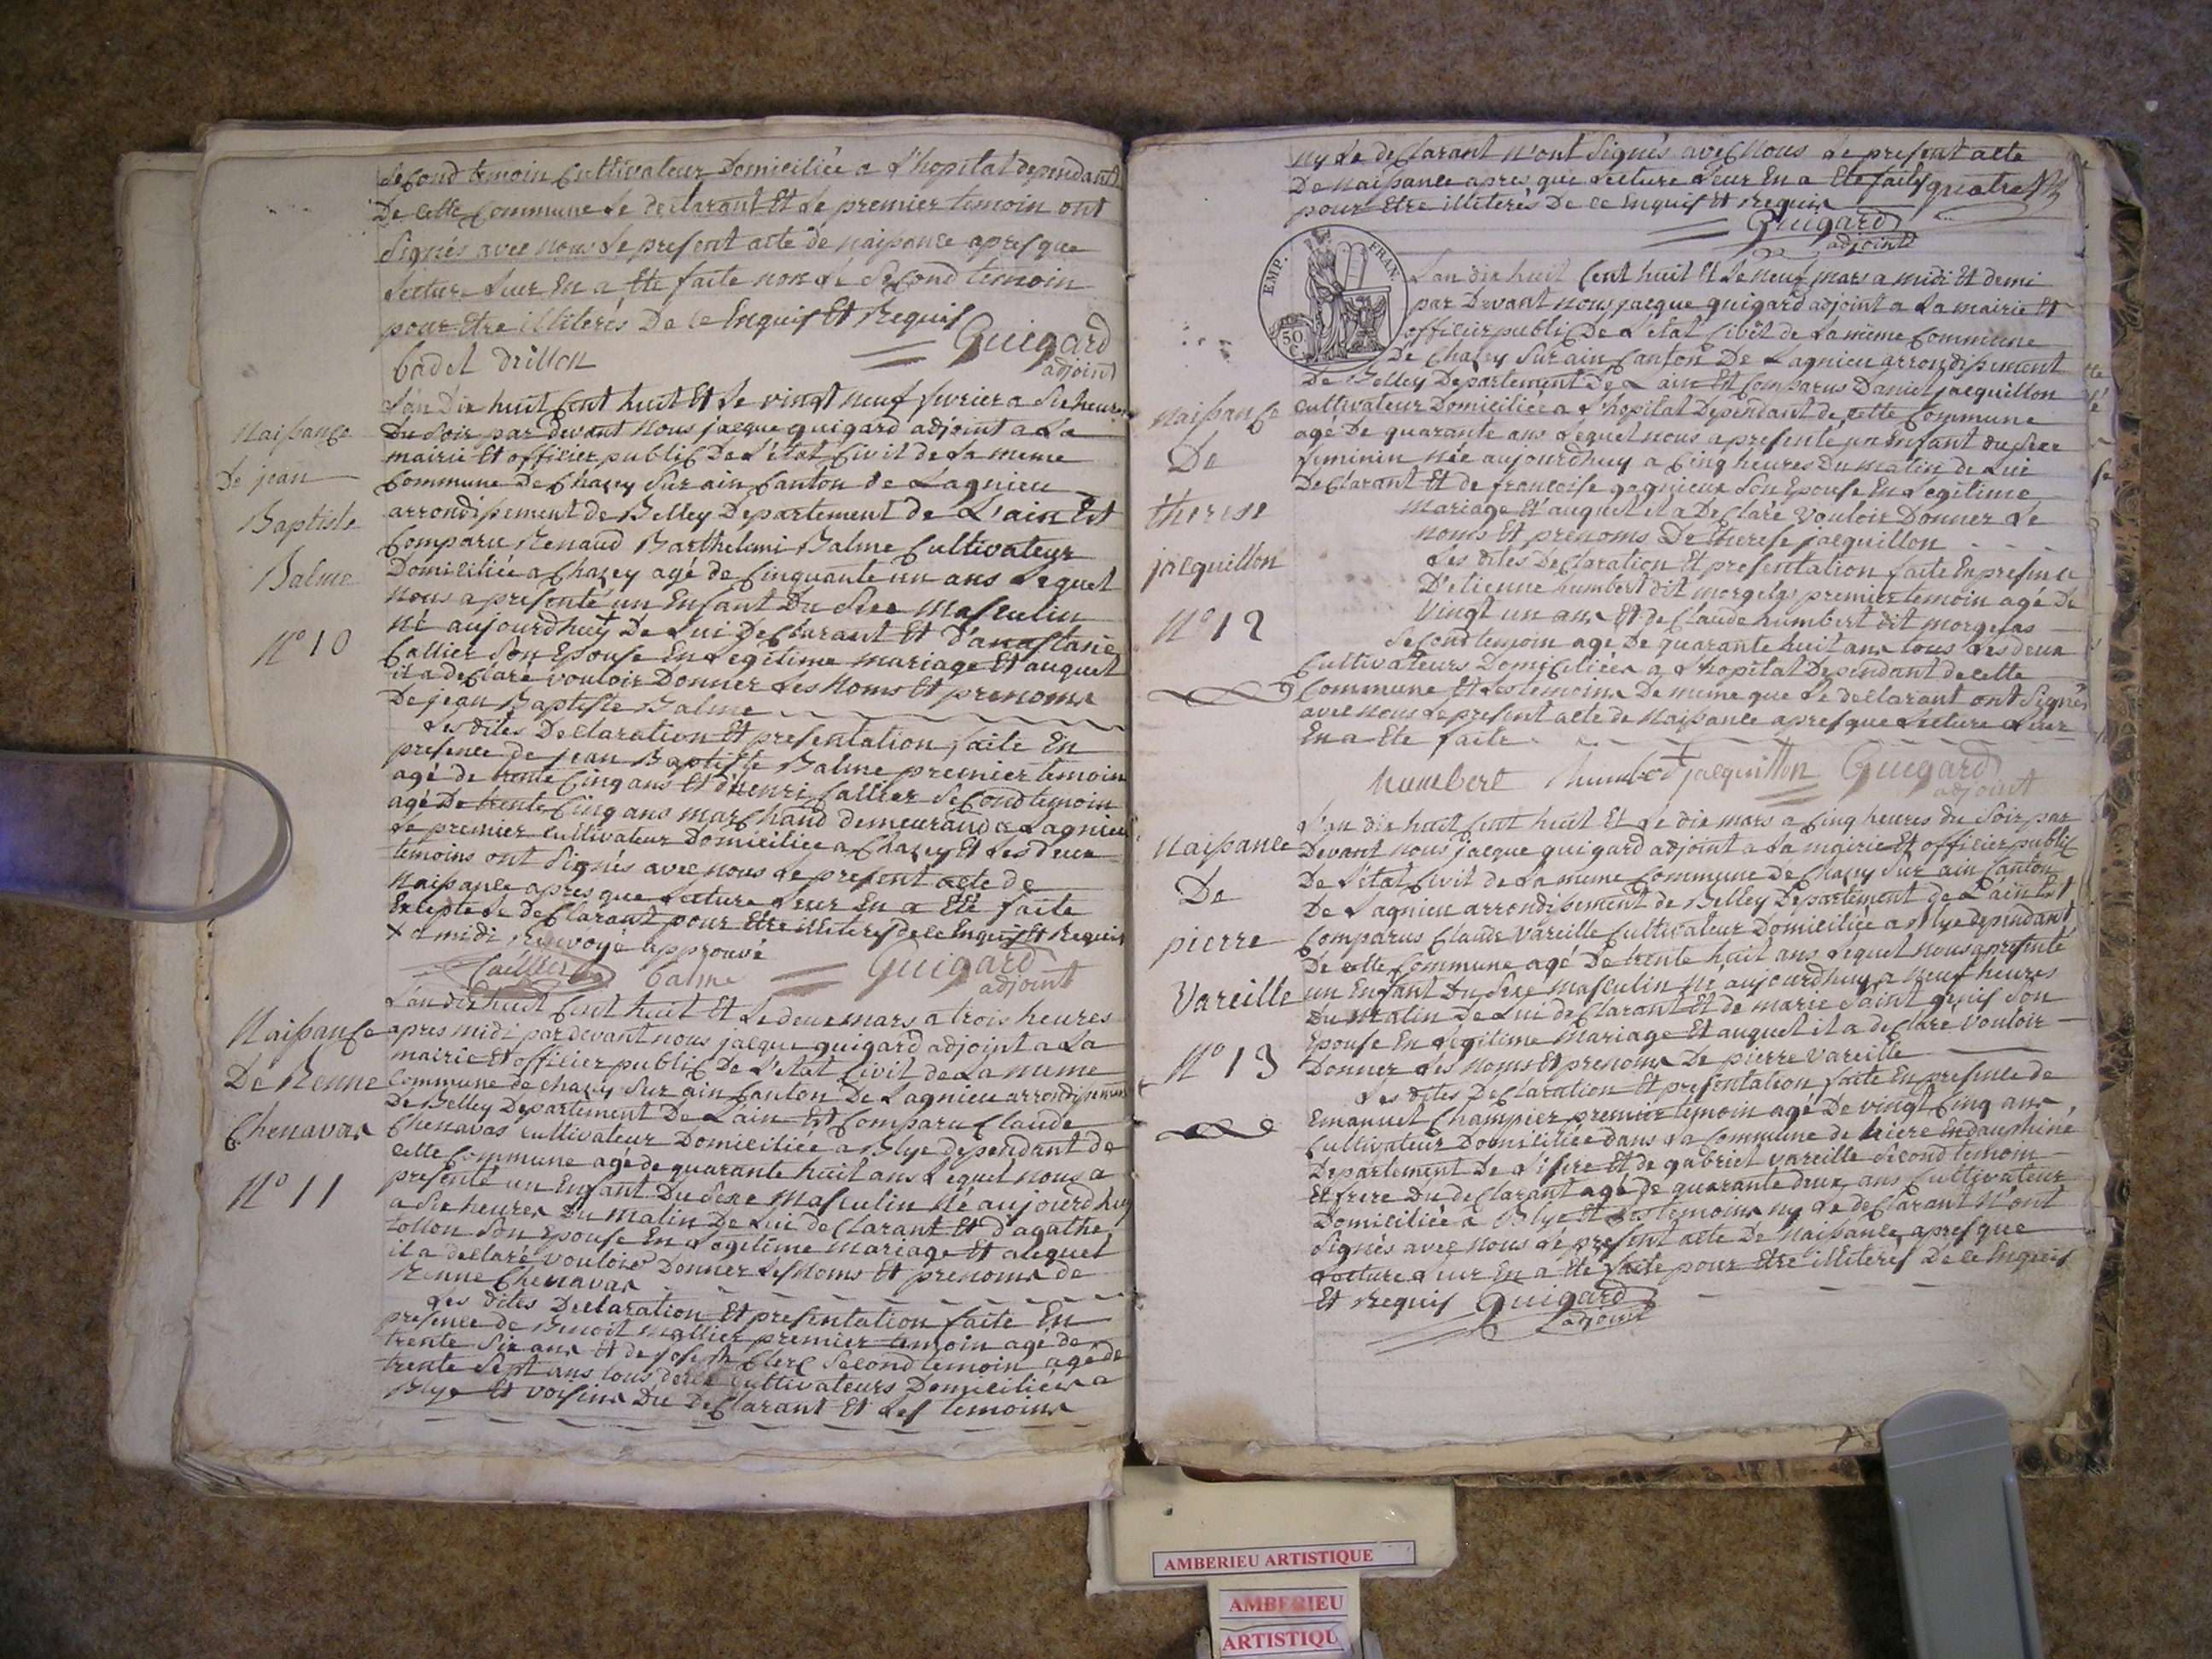 second temoin Cultivateur Domiciliée a L'hopital dependant
De cette Commune Le declarant Et Le premier temoin ont
Signés avec nous Le present acte de naissance apres que
Lecture Leur En a Ete faite non Le Second temoin
pour Etre illiterés De ce Enquis Et Requis
Cadet Drillon Guigard
adjoint
Naissance
De jean
Baptiste
Balme
N° 10
L'an Dix huit Cent huit Et Le vingt neuf fevrier a Six heures
Du Soir par devant Nous jacque guigard adjoint a La
mairie Et officier public De L'état Civil de La meme
Commune De Chazey Sur ain Canton de Lagnieu
arrondissement de Belley Departement de L'ain Est
Comparu Renaud Barthelemi Balme Cultivateur
Domiciliée a Chazey agé de Cinquante un ans Lequel
Nous a presenté un Enfant Du Sexe Masculin
né aujourdhuy + De Lui Declarant Et D'anastasie
Callier Son Epouse En Legitime mariage Et auquel
il a declaré vouloir Donner Les Noms Et prenoms
De jean Baptiste Balme
Les dites Declaration Et presentation faite En
presence de jean Baptiste Balme premier temoin
agé de trente Cinq ans Et d'henri Callier Second temoin
agé De trente Cinq ans marchand demeurand a Lagnieu
Le premier cultivateur Domiciliée a Chazey Et Les deux
temoins ont Signés avec nous Le present acte de
Naissance apres que Lecture Leur En a Eté faite
Excepte Le declarant pour Etre illiteres de ce Enquis Et Requis
+ a midi Renvoyé approuvé
Caillier balme Guigard
adjoint
Naissance
De Renne
Chenavas
N° 11
L'an dix huit Cent huit Et Le deux mars a trois heures
apres midi par devant nous jacque guigard adjoint a La
mairie Et officier public De L'etat Civil de La meme
Commune de chazey Sur ain Canton De Lagnieu arrondissement
De Belley Departement De L'ain Est Comparu Claude
Chenavas cultivateur Domiciliée a Blye dependant de
cette Commune agé de quarante huit ans Lequel nous a
presenté un Enfant Du Sexe Masculin Né aujourdhuy
a Six heures Du matin De Lui declarant Et d'agathe
tollon Son Epouse En Legitime mariage Et auquel
il a declaré vouloir Donner Les Noms Et prenoms de
Renne Chenavas
Les dites Declaration Et presentation faite En
presence de Benoit mallier premier temoin agé de
trente Six ans Et de joseph Clerc Second temoin agé de
trente Sept ans tous deux Cultivateurs Domiciliées a
Blye Et voisins Du Declarant Et Les temoins
ny Le declarant n'ont Signés avec Nous Le present acte
De Naissance apres que Lecture Leur En a Ete faite
pour Etre illiterés De ce Enquis Et Requis
Guigard
adjoint
EMP. FRAN.
50
C.
Naissance
De
therese
jacquillon
N° 12
L'an dix huit Cent huit Et Le neuf mars a midi Et demi
par Devant nous jacque guigard adjoint a La mairie Et
officier public De L'etat Civil de La meme Commune
De Chazey Sur ain Canton De Lagnieu arrondissement
De Belley Departement De L'ain Est Comparus Daniel jacquillon
cultivateur Domiciliée a L'hopital Dependant de cette Commune
agé De quarante ans Lequel nous a presenté un Enfant du Sexe
feminin Née aujourdhuy a Cinq heures Du matin de Lui
Declarant Et de francoise gagnieux Son Epouse En Legitime
Mariage Et auquel il a Declaré Vouloir Donner Le
noms Et prenoms De therese jacquillon
Les dites Declaration Et presentation faite En presence
D'etienne humbert dit morgelas premier temoin agé De
Vingt un ans Et de Claude humbert dit morgelas
Second temoin agé De quarante huit ans tous Les deux
Cultivateurs Domiciliées a L'hopital Dependant de cette
Commune Et Les temoins De meme que Le declarant ont Signés
avec nous Le present acte de Naissance apres que Lecture Leur
En a Ete faite
humbert humbert jacquillon Guigard
adjoint
Naissance
De
pierre
Vareille
N° 13
L'an dix huit Cent huit Et Le dix mars a Cinq heures du Soir par
Devant nous jacque guigard adjoint a La mairie Et officier public
De L'état Civil de La meme Commune De Chazey Sur ain Canton
De Lagnieu arrondissement de Belley Departement de L'ain Est
Comparus Claude Vareille Cultivateur Domiciliée a Blye dependant
De cette Commune agé De trente huit ans Lequel nous a presenté
un Enfant Du Sexe masculin Né aujourdhuy a Neuf heures
Du Matin De Lui declarant Et de marie Saint genis Son
Epouse En Legitime Mariage Et auquel il a declaré Vouloir
Donner Les Noms Et prenoms De pierre Vareille
Les dites Declaration Et presentation faite En presence de
Emanuel Champier premier temoin agé De vingt Cinq ans
Cultivateur Domiciliée dans La Commune de hiere En dauphiné
Departement De L'isere Et de gabriel Vareille Second temoin
Et frere Du declarant agé De quarante deux ans Cultivateur
Domiciliée a Blye Et Les temoins ny Le declarant N'ont
Signés avec Nous Le present acte De Naissance apres que
Lecture Leur En a Ete faite pour Etre illiteres De ce Enquis
Et Requis Guigard
adjoint
AMBERIEU ARTISTIQUE
AMBERIEU
ARTISTIQU